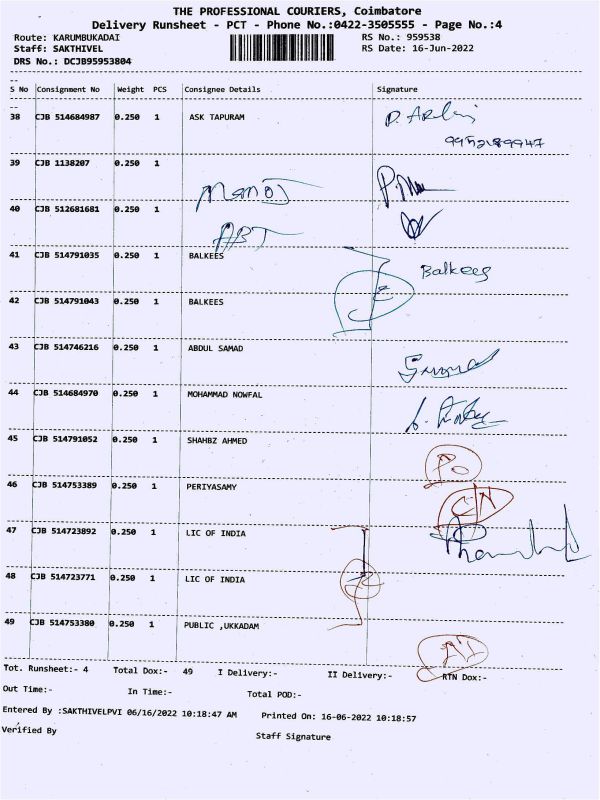 THE PROFESSIONAL COURIERS, Coimbatore
Delivery Runsheet - PCT - Phone No.:0422-3505555 - Page No.:4
Route: KARUMBUKADAI
RS No.: 959538
Staff: SAKTHIVEL
RS Date: 16-Jun-2022
DRS No.: DCJB95953804
S No Consignment No Weight PCS Consignee Details Signature
38 CJB 514684987 0.250 1 ASK TAPURAM
9952189947
39 CJB 1138207 0.250 1
Manoj
40 CJB 512681681 0.250 1
ABT
41 CJB 514791035 0.250 1 BALKEES Balkees
42 CJB 514791043 0.250 1 BALKEES
43 CJB 514746216 0.250 1 ABDUL SAMAD
44 CJB 514684970 0.250 1 MOHAMMAD NOWFAL
45 CJB 514791052 0.250 1 SHAHBZ AHMED
46 CJB 514753389 0.250 1 PERIYASAMY
47 CJB 514723892 0.250 1 LIC OF INDIA
48 CJB 514723771 0.250 1 LIC OF INDIA
49 CJB 514753380 0.250 1 PUBLIC ,UKKADAM
Tot. Runsheet:- 4 Total Dox:- 49 I Delivery:- II Delivery:- RTN Dox:-
Out Time:- In Time:- Total POD:-
Entered By :SAKTHIVELPVI 06/16/2022 10:18:47 AM Printed On: 16-06-2022 10:18:57
Verified By
Staff Signature